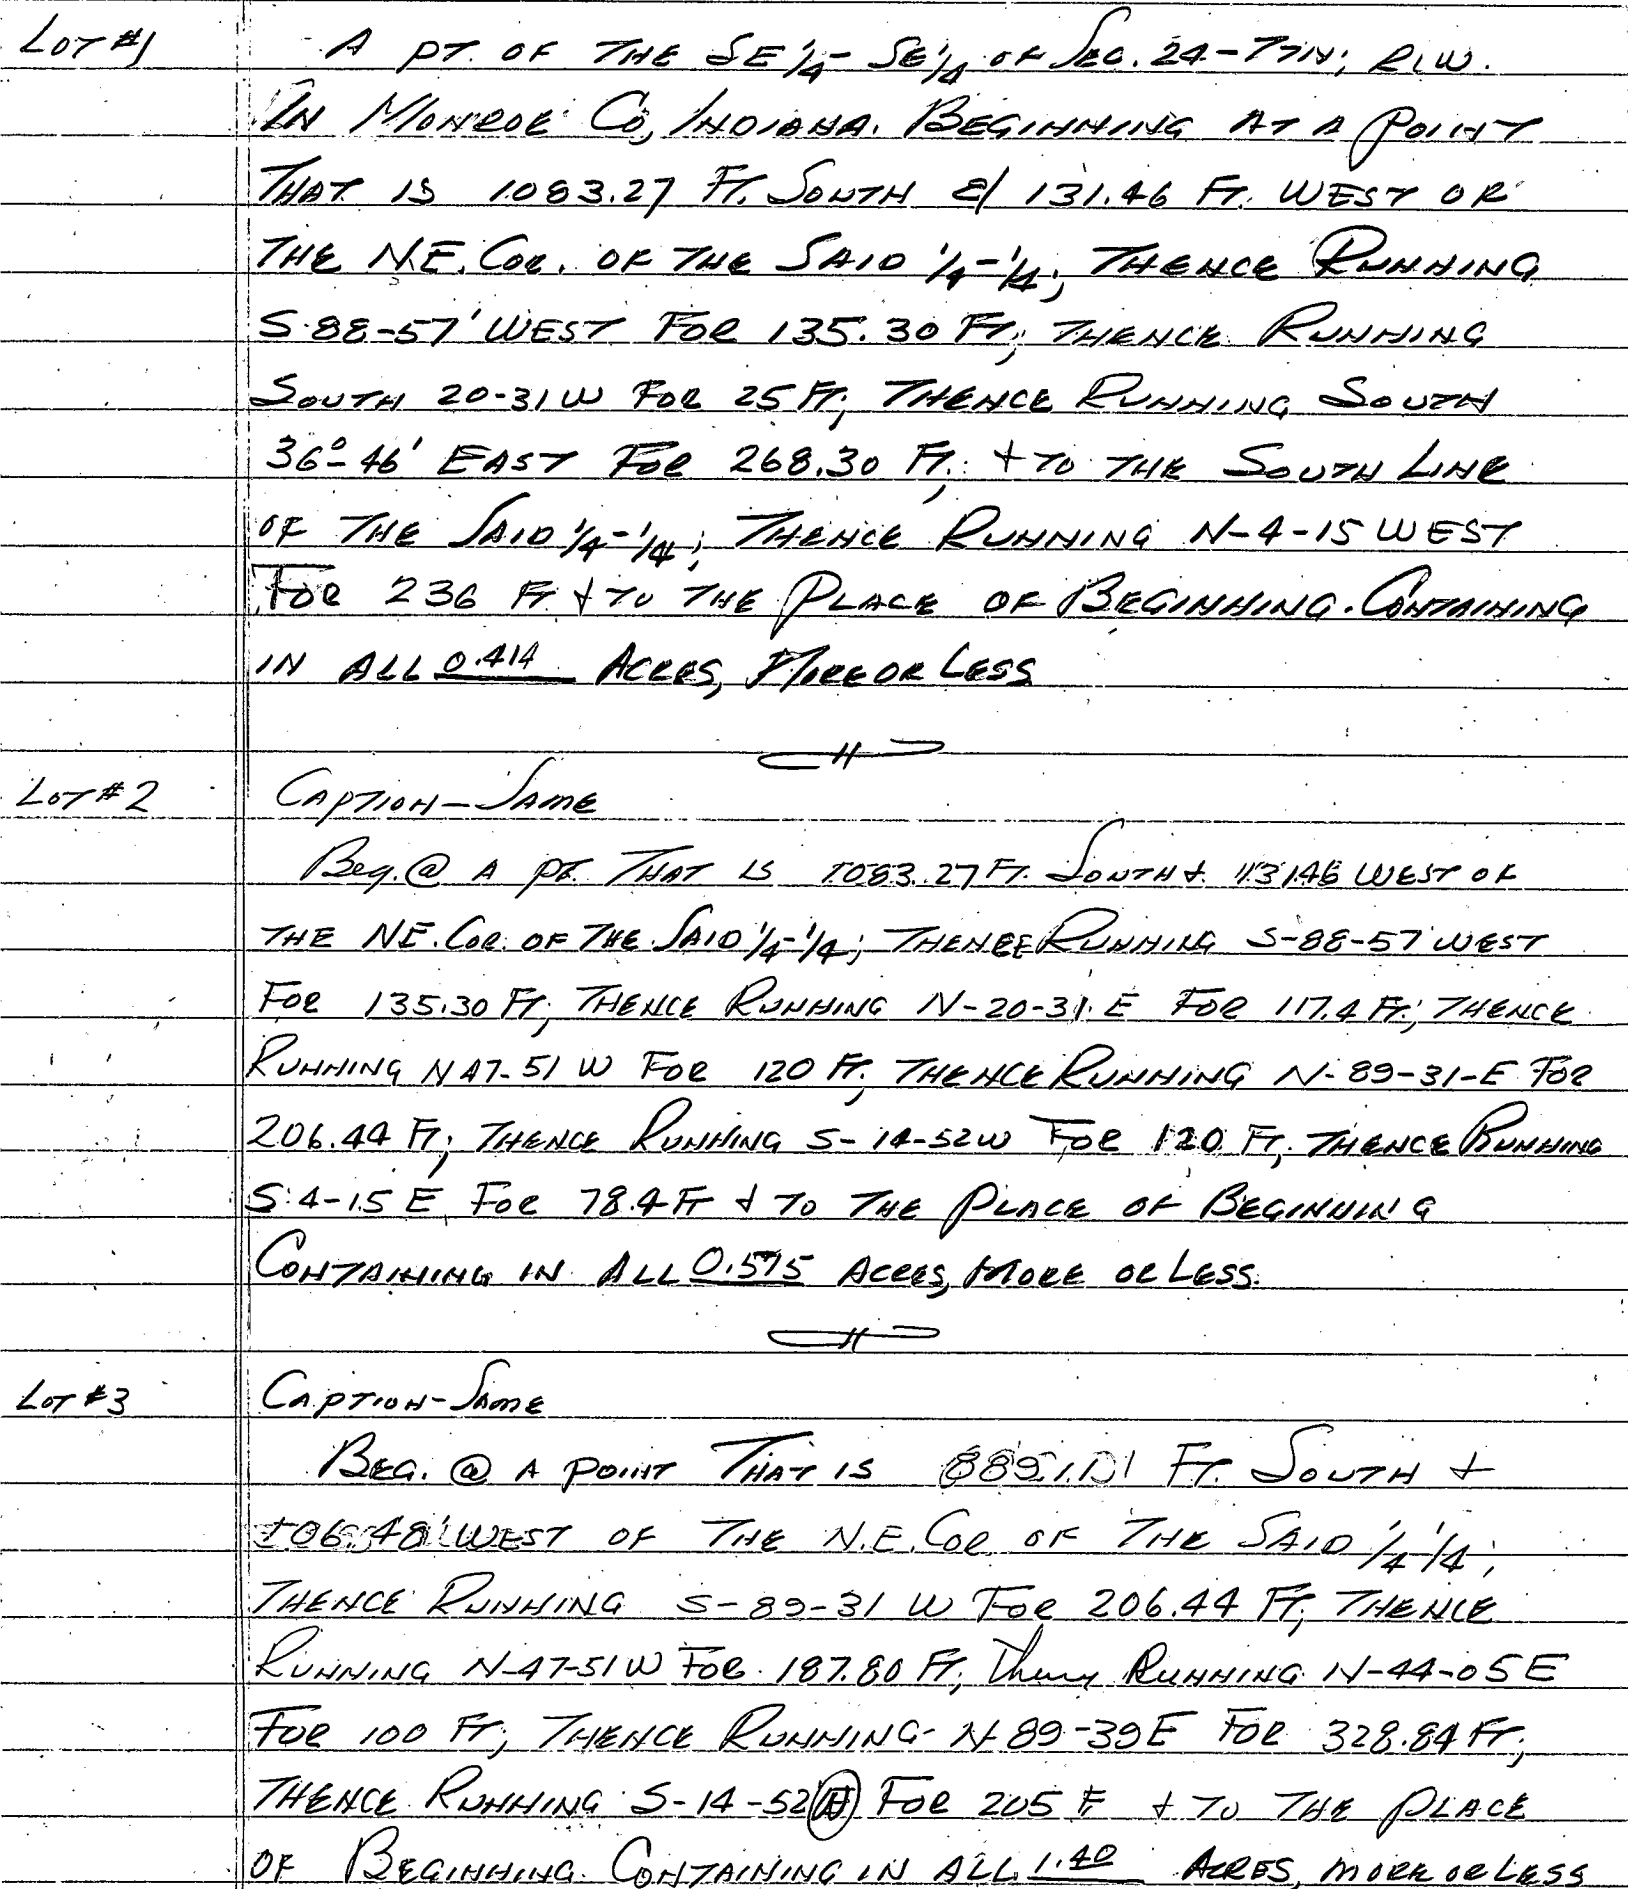 LOT #1 A PT. OF THE SE 1/4 - SE 1/4 OF SEC. 24 - T7N; R1W.
IN MONROE CO, INDIANA. BEGINNING AT A POINT
THAT IS 1083.27 FT. SOUTH & 131.46 FT. WEST OF
THE N.E. COR. OF THE SAID 1/4 - 1/4; THENCE RUNNING
S-88-57' WEST FOR 135.30 FT; THENCE RUNNING
SOUTH 20-31 W FOR 25 FT; THENCE RUNNING SOUTH
36°-46' EAST FOR 268.30 FT; + TO THE SOUTH LINE
OF THE SAID 1/4 - 1/4; THENCE RUNNING N-4-15 WEST
FOR 236 FT + TO THE PLACE OF BEGINNING. CONTAINING
IN ALL 0.414 ACRES, MORE OR LESS
LOT #2 CAPTION - SAME
Beg. @ A PT. THAT IS 1083.27 FT. SOUTH + 131.46 WEST OF
THE NE. COR. OF THE SAID 1/4 - 1/4; THENCE RUNNING S-88-57' WEST
FOR 135.30 FT; THENCE RUNNING N-20-31 E FOR 117.4 FT; THENCE
RUNNING N 47-51 W FOR 120 FT; THENCE RUNNING N-89-31-E FOR
206.44 FT; THENCE RUNNING S-14-52 W FOR 120 FT; THENCE RUNNING
S-4-15 E FOR 78.4 FT + TO THE PLACE OF BEGINNING
CONTAINING IN ALL 0.575 ACRES, MORE OR LESS.
LOT #3 CAPTION - SAME
BEG. @ A POINT THAT IS FT. SOUTH +
106.48' WEST OF THE N.E. COR OF THE SAID 1/4 1/4;
THENCE RUNNING S-89-31 W FOR 206.44 FT; THENCE
RUNNING N-47-51 W FOR 187.80 FT; RUNNING N-44-05 E
FOR 100 FT; THENCE RUNNING N 89-39 E FOR 328.84 FT;
THENCE RUNNING S-14-52 FOR 205 F + TO THE PLACE
OF BEGINNING. CONTAINING IN ALL 1.40 ACRES, MORE OR LESS